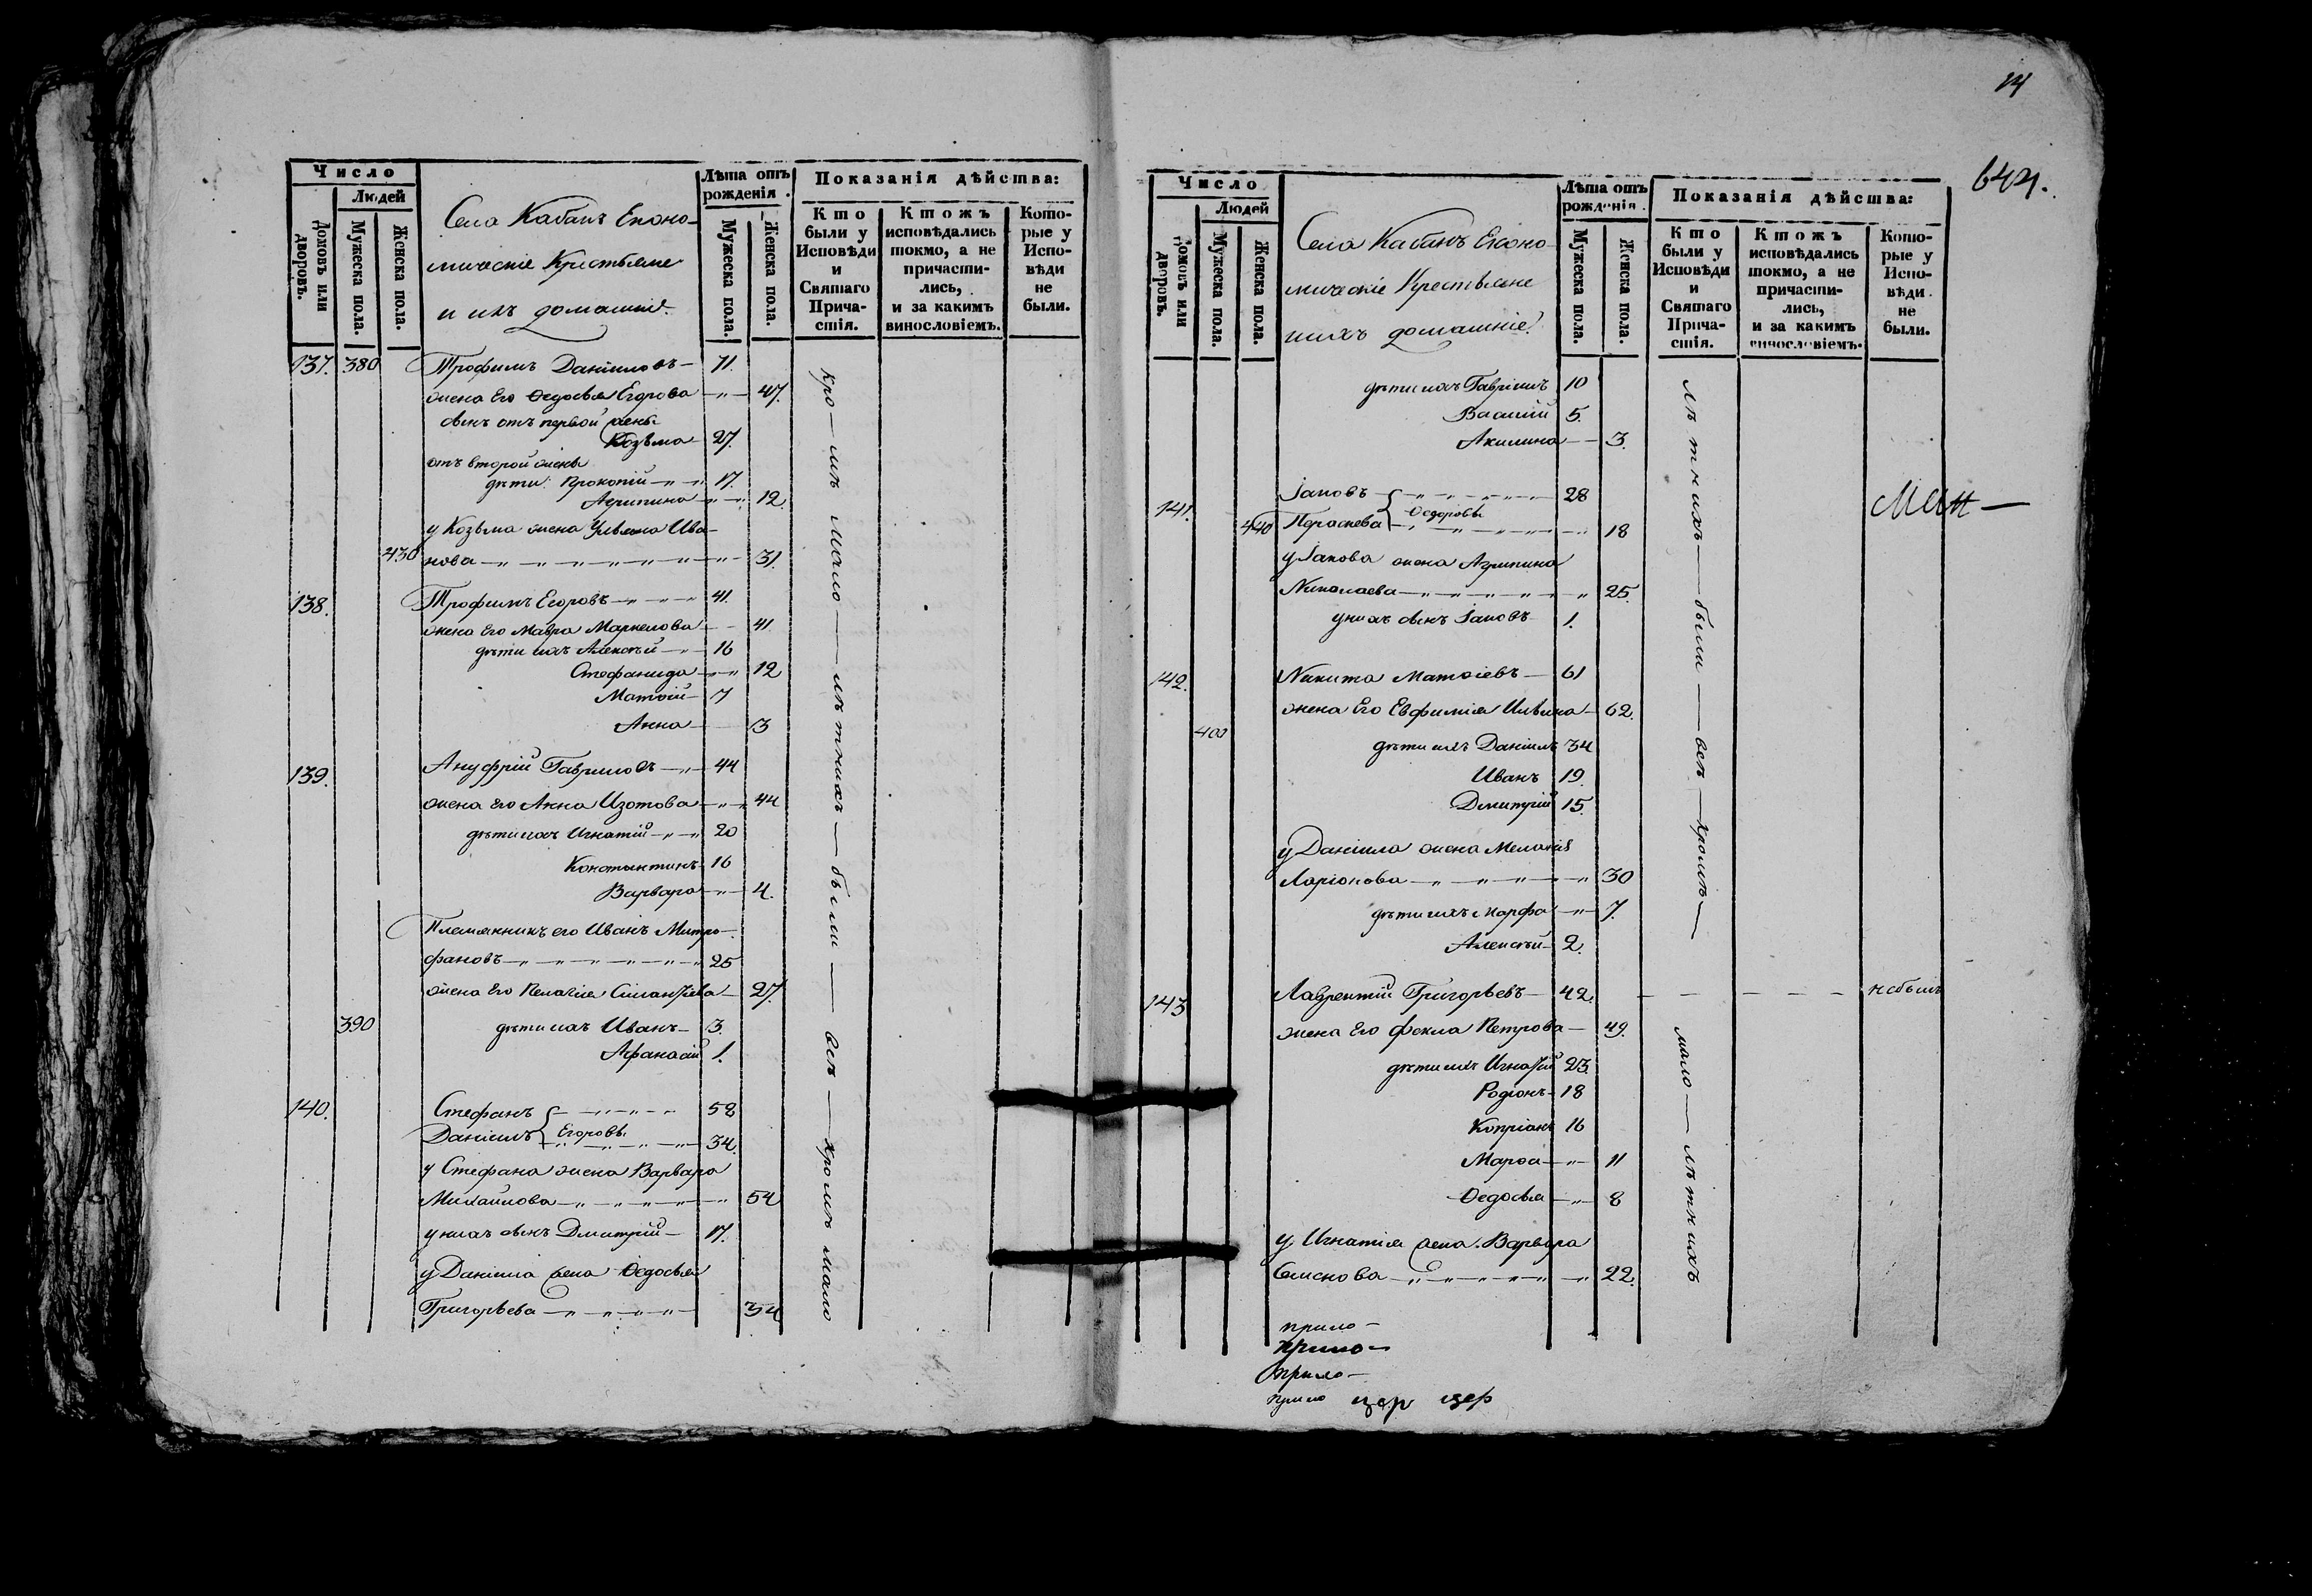 14
644.
Число
Людей
Домовъ или дворовъ.
Мужеска пола.
Женска пола.
Села Кабанъ Еконо-
мическіе Крестьяне
и ихъ домашніе.
Лѣта отъ рожденія.
Мужеска пола.
Женска пола.
Показанія дѣйства:
Кто были у Исповѣди и Святаго Прича-стія.
Ктожъ исповѣдались токмо, а не причасти-лись, и за какимъ винословіемъ.
Кото-рые у Испо-вѣди не были.
137. 380 Трофимъ Даніиловъ — 71.
жена Его Ѳедосья Егорова — 47.
сынъ отъ первой жены
Козьма — 27.
отъ второй жены
дѣти: Прокопій — 17.
Агрипина — 12.
у Козьма жена Ульяна Ива-
430 нова — 31.
138. Трофимъ Егоровъ — 41.
жена Его Мавра Маркелова — 41
дѣти ихъ Алексѣй — 16
Стефанида — 12
Матѳій — 7
Анна — 3
139. Ануфрій Гавриловъ — 44
жена его Анна Изотова — 44
дѣти ихъ Игнатій — 20
Константинъ — 16
Варвара — 4.
Племянникъ его Иванъ Митро-
фановъ — 25
жена Его Пелагія — 27.
390 дѣти ихъ Иванъ — 3.
Афанасій 1.
140. Стефанъ — 58
Даніилъ Егоровы — 34.
у Стефана жена Варвара
Михайлова — 54
у нихъ сынъ Дмитрій — 17.
у Даніила жена Ѳедосья
Григорьева — 34
кро — мѣ мало — лѣтнихъ — были — всѣ — кромѣ мало
Число
Людей
Домовъ или дворовъ.
Мужеска пола.
Женска пола.
Села Кабанъ Еконо-
мическіе Крестьяне
и ихъ домашніе.
Лѣта отъ рожденія.
Мужеска пола.
Женска пола.
Показанія дѣйства:
Кто были у Исповѣди и Святаго Прича-стія.
Ктожъ исповѣдались токмо, а не причасти-лись, и за какимъ винословіемъ.
Кото-рые у Испо-вѣди не были.
дѣти ихъ Гавріилъ 10
Василій 5.
Акилина — 3.
141. Іаковъ — 28
440 Параскева Ѳедоровы — 18
у Іакова жена Агрипина
Николаева — 25.
у нихъ сынъ Іаковъ 1.
142. Никита Матѳіевъ — 61
жена Его Евфимія Ильина — 62.
400 дѣти ихъ Даніилъ 34
Иванъ 19.
Дмитрій 15.
у Даніила жена Меланія
Ларіонова — 30
дѣти ихъ Марфа — 7.
Алексѣй — 2.
143 Лаврентій Григорьевъ — 42. — — — — — не былъ
жена Его Фекла Петрова — 49.
дѣти ихъ Игнатій 23.
Родіонъ — 18
Кипріанъ 16
Марѳа — 11
Ѳедосья — 8
у Игнатія жена Варвара
Семенова — 22.
лѣтнихъ — были — всѣ — кромѣ —
мало — лѣтнихъ
прило —
прило —
прило —
прило цер цер